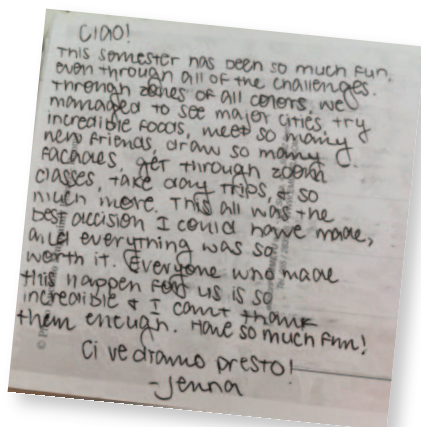 Ciao!
This semester has been so much fun,
even through all of the challenges.
Through zones of all colors, we
managed to see major cities, try
incredible foods, meet so many
new friends, draw so many
facades, get through zoom
classes, take day trips, & so
much more. This all was the
best decision I could have made,
and everything was so
worth it. Everyone who made
this happen for us is so
incredible & I can't thank
them enough. Have so much fun!
Ci vediamo presto!
-Jenna